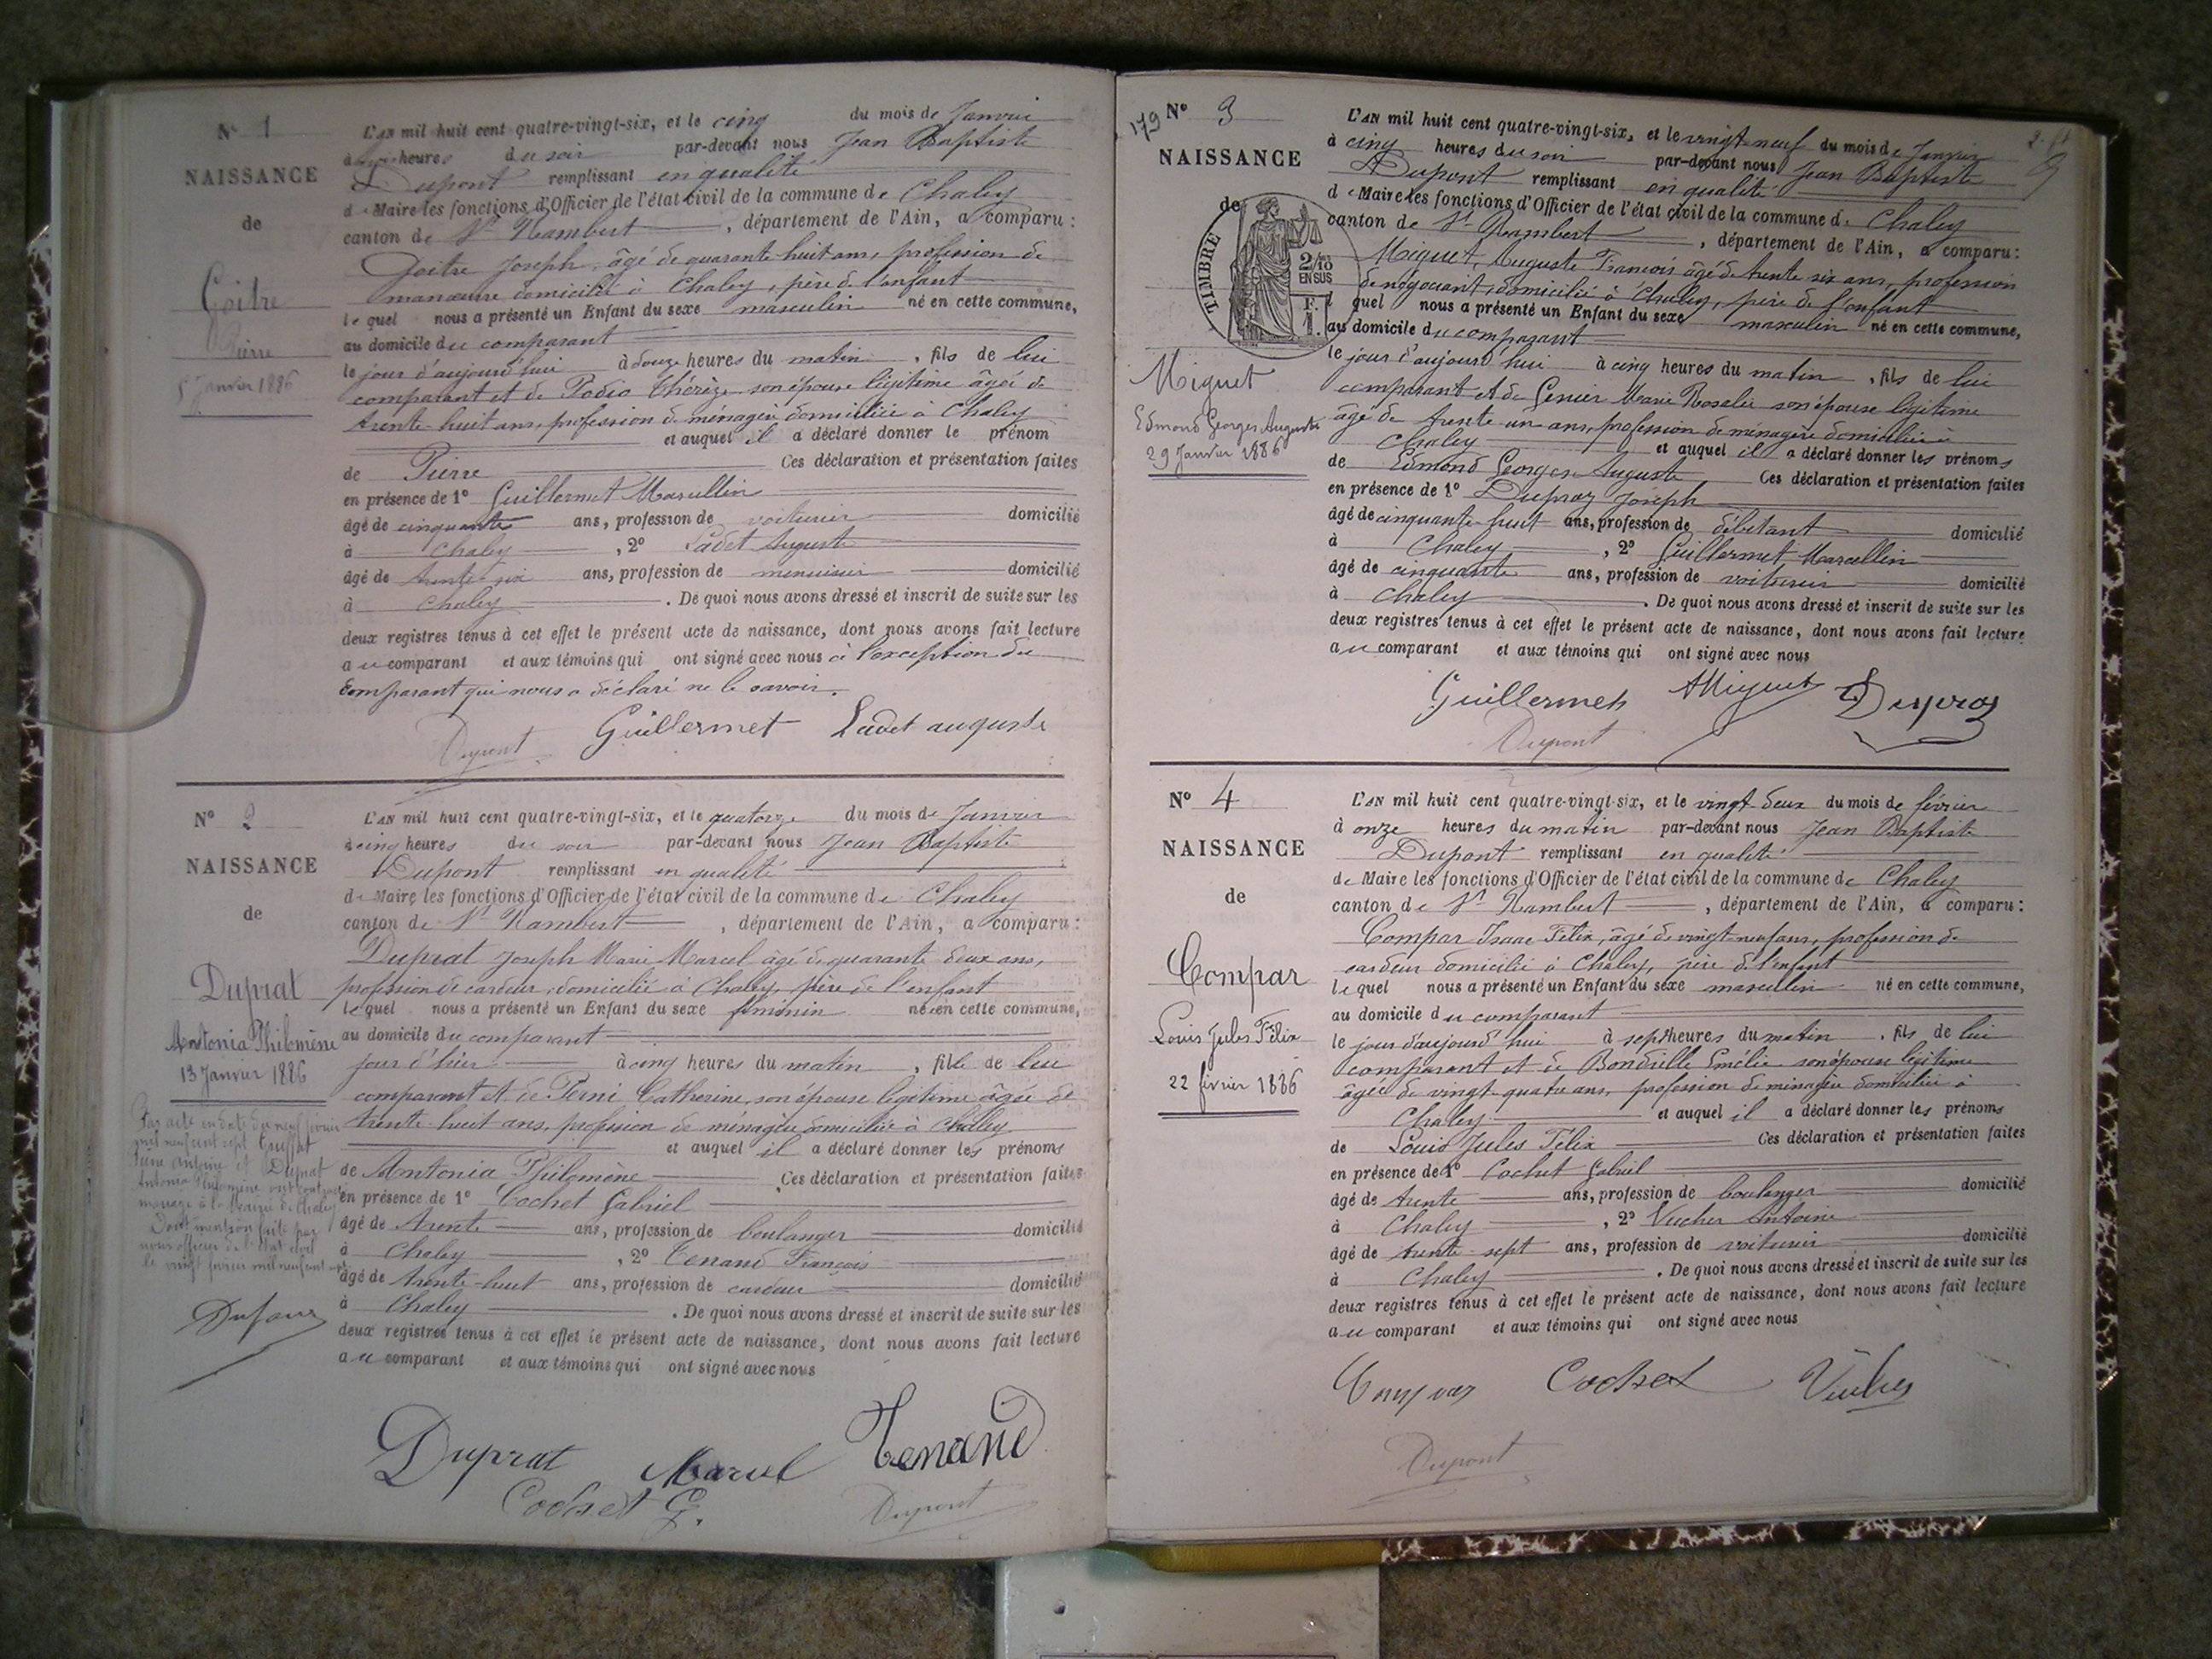 N° 1
NAISSANCE
de
Goitre
Pierre
5 Janvier 1886
L'AN mil huit cent quatre-vingt-six, et le cinq du mois de Janvier
à heures du soir par-devant nous Jean Baptiste
Dupont remplissant en qualité
de Maire les fonctions d'Officier de l'état civil de la commune de Chaley
canton de St Rambert, département de l'Ain, a comparu :
Goitre Joseph, âgé de quarante huit ans, profession de
manœuvre domicilié à Chaley, père de l'enfant
lequel nous a présenté un Enfant du sexe masculin né en cette commune,
au domicile du comparant
le jour d'aujourd'hui à douze heures du matin, fils de lui
comparant et de Podio Thérèze son épouse légitime âgée de
trente-huit ans, profession de ménagère domiciliée à Chaley
et auquel il a déclaré donner le prénom
de Pierre Ces déclaration et présentation faites
en présence de 1° Guillermet Marcellin
âgé de cinquante ans, profession de voiturier domicilié
à Chaley, 2° Ladet Auguste
âgé de trente six ans, profession de menuisier domicilié
à Chaley. De quoi nous avons dressé et inscrit de suite sur les
deux registres tenus à cet effet le présent acte de naissance, dont nous avons fait lecture
au comparant et aux témoins qui ont signé avec nous à l'exception du
comparant qui nous a déclaré ne le savoir.
Dupont Guillermet Ladet auguste
N° 2
NAISSANCE
de
Duprat
Antonia Philomène
13 Janvier 1886
Par acte en date du neuf
mil neuf cent sept
Antoine et Duprat
Antonia Philomène ont contracté
mariage à la Mairie de Chaley
Dont mention faite par
nous officier de l'état civil
le vingt février mil neuf cent
Dufour
L'AN mil huit cent quatre-vingt-six, et le quatorze du mois de Janvier
à cinq heures du soir par-devant nous Jean Baptiste
Dupont remplissant en qualité
de Maire les fonctions d'Officier de l'état civil de la commune de Chaley
canton de St Rambert, département de l'Ain, a comparu :
Duprat Joseph Marie Marcel âgé de quarante deux ans,
profession de cardeur, domicilié à Chaley, père de l'enfant
lequel nous a présenté un Enfant du sexe féminin née en cette commune,
au domicile du comparant
jour d'hier à cinq heures du matin, fille de lui
comparant et de Perni Catherine, son épouse légitime âgée de
trente-huit ans, profession de ménagère domiciliée à Chaley
et auquel il a déclaré donner les prénoms
de Antonia Philomène Ces déclaration et présentation faites
en présence de 1° Cochet Gabriel
âgé de trente ans, profession de boulanger domicilié
à Chaley, 2° Tenand François
âgé de trente-huit ans, profession de cardeur domicilié
à Chaley. De quoi nous avons dressé et inscrit de suite sur les
deux registres tenus à cet effet le présent acte de naissance, dont nous avons fait lecture
au comparant et aux témoins qui ont signé avec nous
Duprat Marcel Tenand
Cochet G. Dupont
179 N° 3
NAISSANCE
de
TIMBRE
2/10
EN SUS
F.
1.
Miguet
Edmond Georges Auguste
29 Janvier 1886
L'AN mil huit cent quatre-vingt-six, et le vingt-neuf du mois de Janvier
à cinq heures du soir par-devant nous Jean Baptiste
Dupont remplissant en qualité
de Maire les fonctions d'Officier de l'état civil de la commune de Chaley
canton de St Rambert, département de l'Ain, a comparu :
Miguet, Auguste François âgé de trente six ans, profession
de négociant, domicilié à Chaley, père de l'enfant
lequel nous a présenté un Enfant du sexe masculin né en cette commune,
au domicile du comparant
le jour d'aujourd'hui à cinq heures du matin, fils de lui
comparant et de Genier Marie Rosalie son épouse légitime
âgée de trente un ans, profession de ménagère domiciliée à
Chaley et auquel il a déclaré donner les prénoms
de Edmond Georges Auguste Ces déclaration et présentation faites
en présence de 1° Dupraz Joseph
âgé de cinquante-huit ans, profession de débitant domicilié
à Chaley, 2° Guillermet Marcellin
âgé de cinquante ans, profession de voiturier domicilié
à Chaley. De quoi nous avons dressé et inscrit de suite sur les
deux registres tenus à cet effet le présent acte de naissance, dont nous avons fait lecture
au comparant et aux témoins qui ont signé avec nous
Guillermet AMiguet Dupraz
Dupont
N° 4
NAISSANCE
de
Compar
Louis Jules Félix
22 février 1886
L'AN mil huit cent quatre-vingt-six, et le vingt-deux du mois de février
à onze heures du matin par-devant nous Jean Baptiste
Dupont remplissant en qualité
de Maire les fonctions d'Officier de l'état civil de la commune de Chaley
canton de St Rambert, département de l'Ain, a comparu :
Compar Isaac Félix, âgé de vingt-neuf ans, profession de
cardeur domicilié à Chaley, père de l'enfant
lequel nous a présenté un Enfant du sexe masculin né en cette commune,
au domicile du comparant
le jour d'aujourd'hui à sept heures du matin, fils de lui
comparant et de Bondrille Emélie son épouse légitime
âgée de vingt-quatre ans, profession de ménagère domiciliée à
Chaley et auquel il a déclaré donner les prénoms
de Louis Jules Félix Ces déclaration et présentation faites
en présence de 1° Cochet Gabriel
âgé de trente ans, profession de boulanger domicilié
à Chaley, 2° Vucher Antoine
âgé de trente-sept ans, profession de voiturier domicilié
à Chaley. De quoi nous avons dressé et inscrit de suite sur les
deux registres tenus à cet effet le présent acte de naissance, dont nous avons fait lecture
au comparant et aux témoins qui ont signé avec nous
Compar Cochet Vucher
Dupont